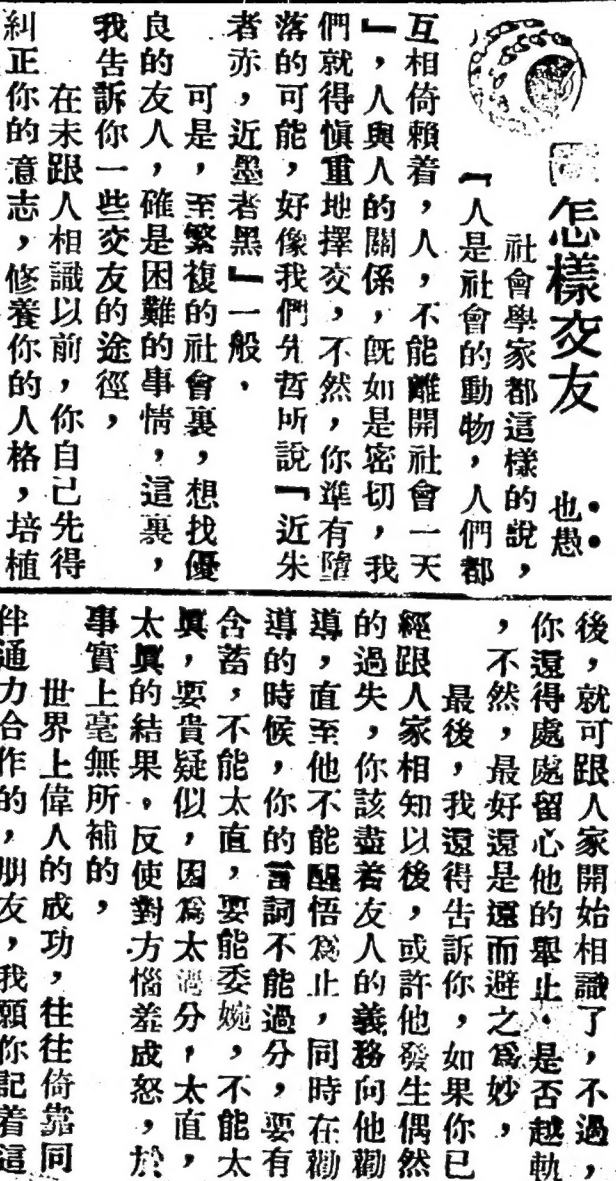 怎樣交友
也愚
社會學家都這樣的說，
『人是社會的動物，人們都
互相倚賴着，人，不能離開社會一天
』，人與人的關係，既如是密切，我
們就得慎重地擇交，不然，你準有墮
落的可能，好像我們先哲所說『近朱
者赤，近墨者黑』一般．
可是，至繁複的社會裏，想找優
良的友人，確是困難的事情，這裏，
我告訴你一些交友的途徑，
在未跟人相識以前，你自己先得
糾正你的意志，修養你的人格，培植
後，就可跟人家開始相識了，不過，
你還得處處留心他的舉止，是否越軌
，不然，最好還是遠而避之爲妙，
最後，我還得告訴你，如果你已
經跟人家相知以後，或許他發生偶然
的過失，你該盡着友人的義務向他勸
導，直至他不能醒悟爲止，同時在勸
導的時候，你的言詞不能過分，要有
含蓄，不能太直，要能委婉，不能太
眞，要貴疑似，因爲太過分，太直，
太眞的結果，反使對方惱羞成怒，於
事實上毫無所補的，
世界上偉人的成功，往往倚靠同
伴通力合作的，朋友，我願你記着這